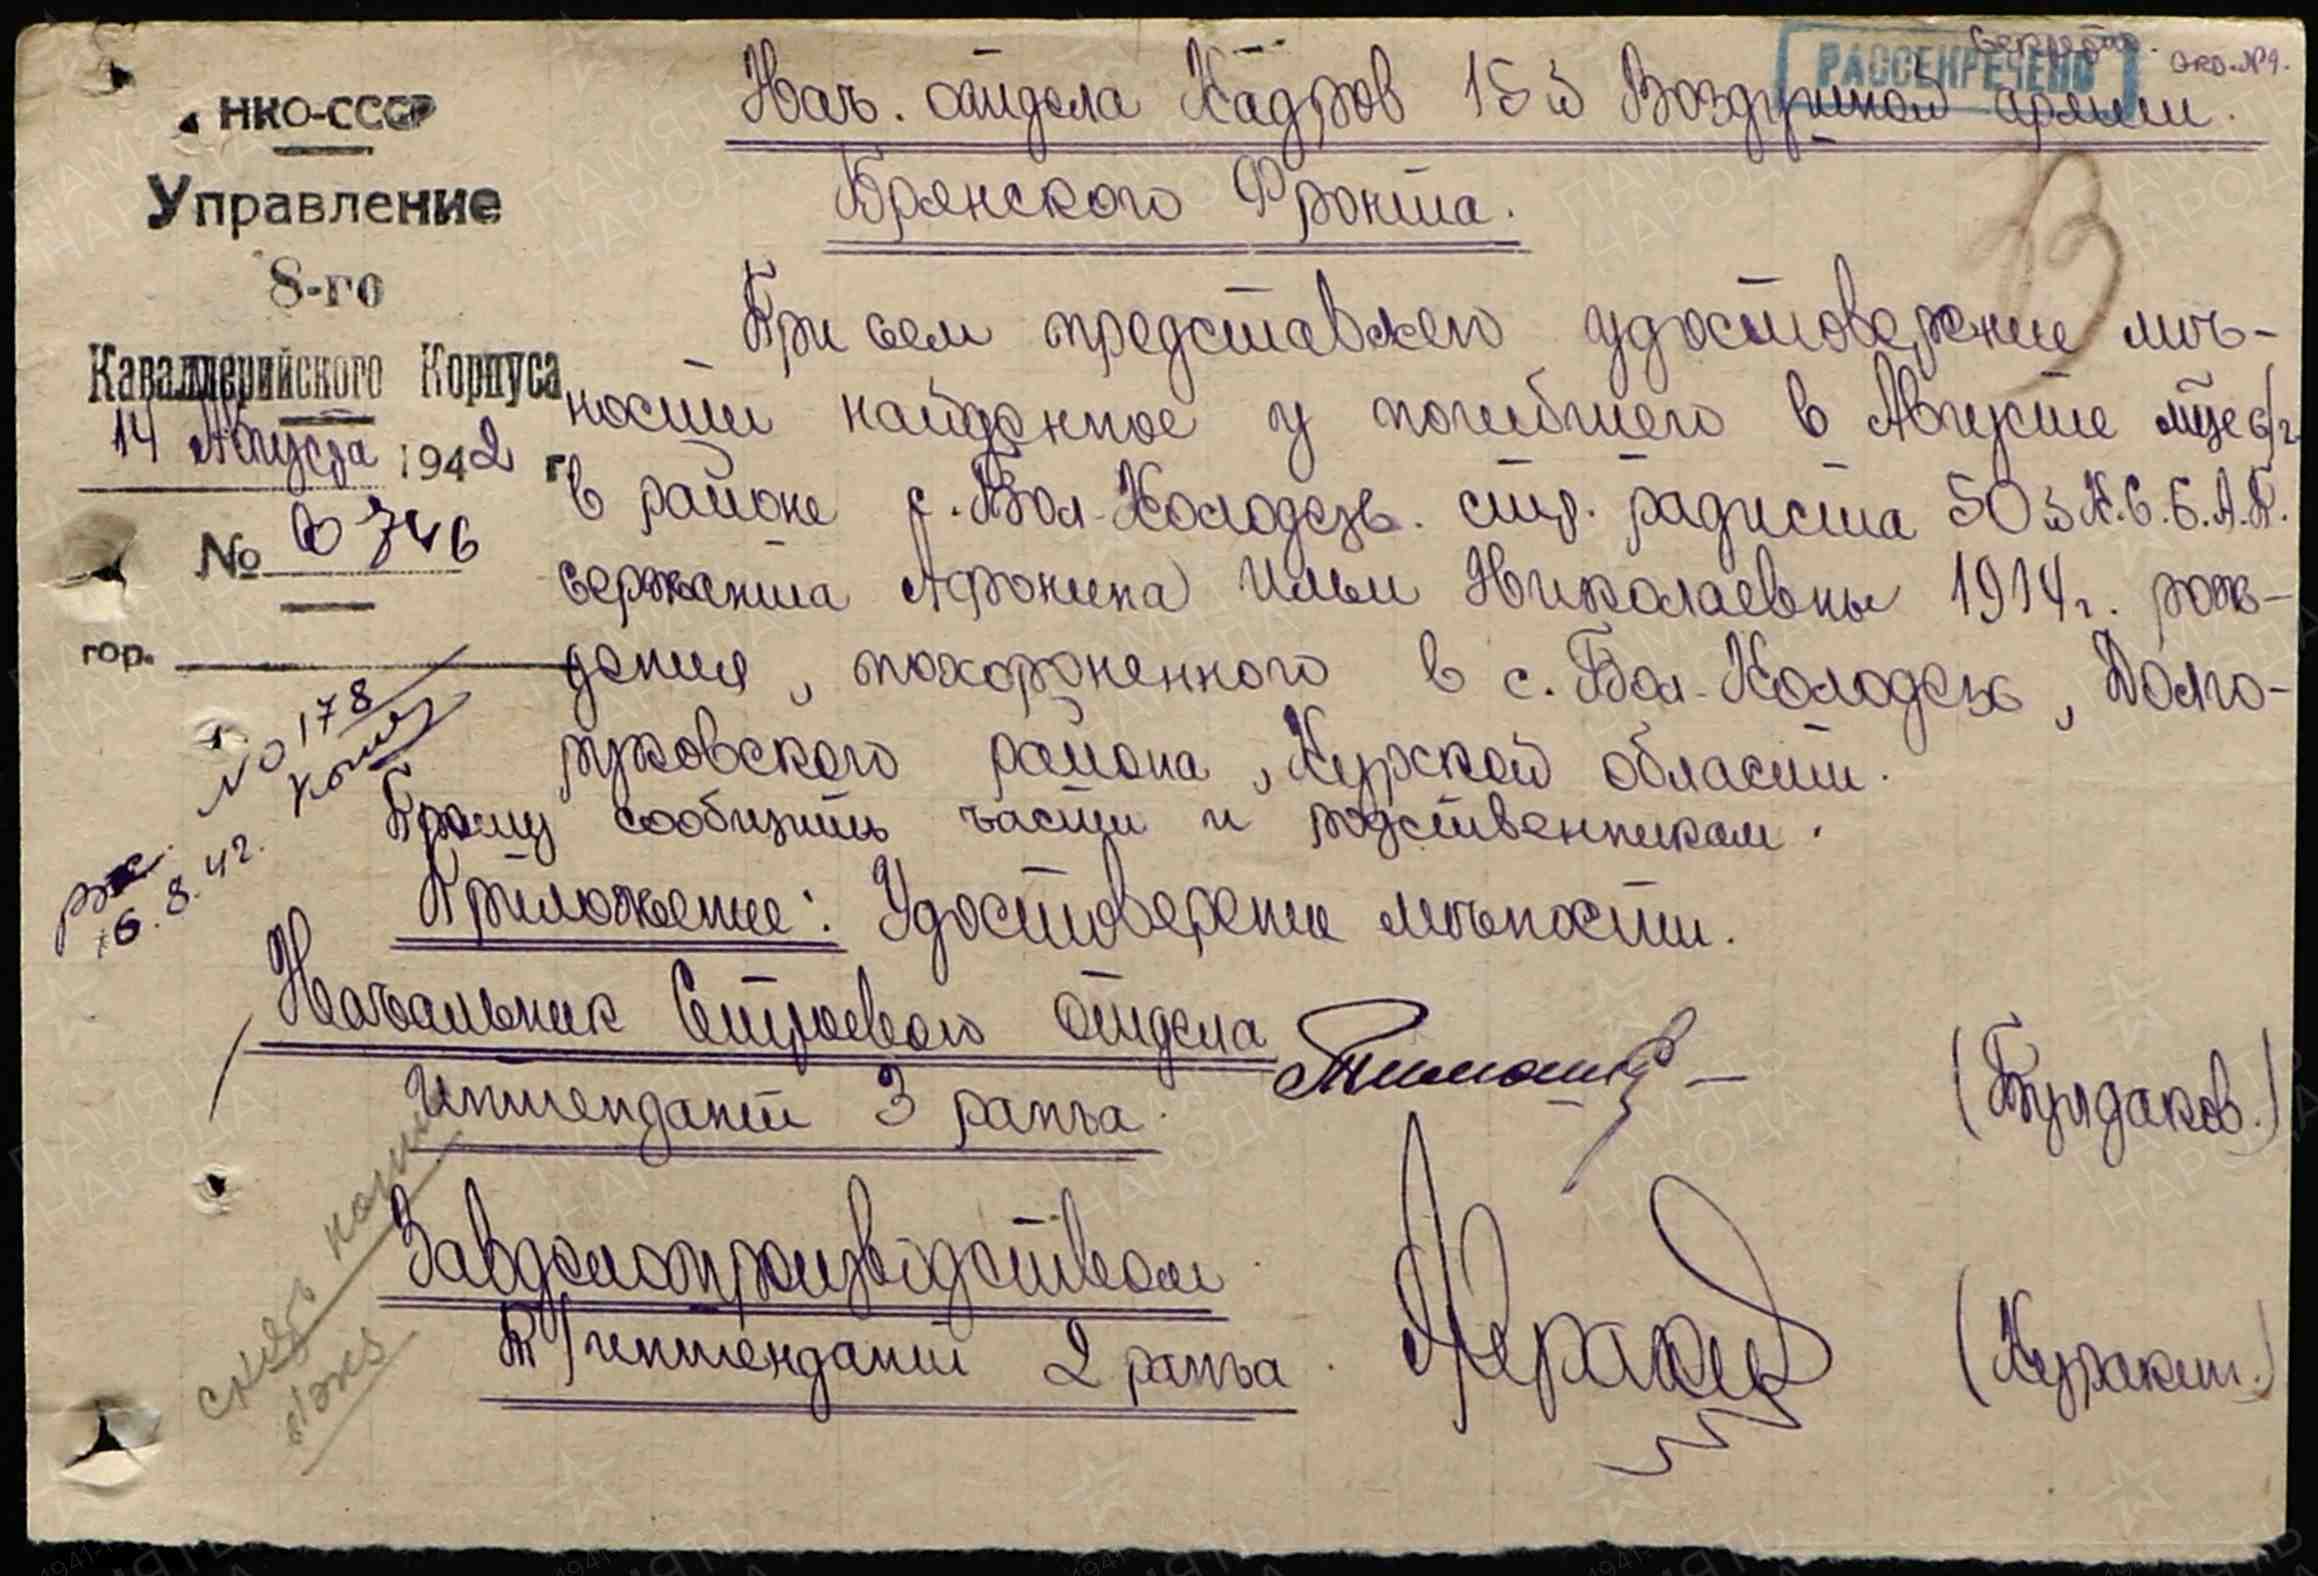 Секретно.
РАССЕКРЕЧЕНО
НКО-СССР
Управление
8-го
Кавалерийского Корпуса
14 Августа 1942 г
№ 0746
гор.
Нач. отдела Кадров 15й Воздушной армии.
Брянского Фронта.
При сем представляю удостоверение лич-
ности найденное у погибшего в Августе м-це с/г
в районе с. Бол-Колодезь. стр. радиста 503 К.С.Б.А.П.
сержанта Афонина Ильи Николаевны 1914г. рож-
дения, похороненного в с. Бол-Колодезь, Долго-
руковского района, Курской области.
Прошу сообщить части и родственникам.
Приложение: Удостоверение личности.
Начальник Строевого отдела
Интендант 3 ранга.
(Булдаков.)
Завделопроизводством
Т/интендант 2 ранга.
(Куракин.)
№ 178
16.8.42.